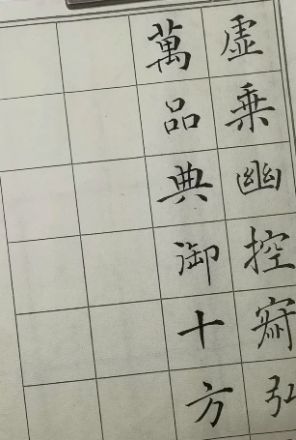 虚乗幽控寂弘
萬品典御十方